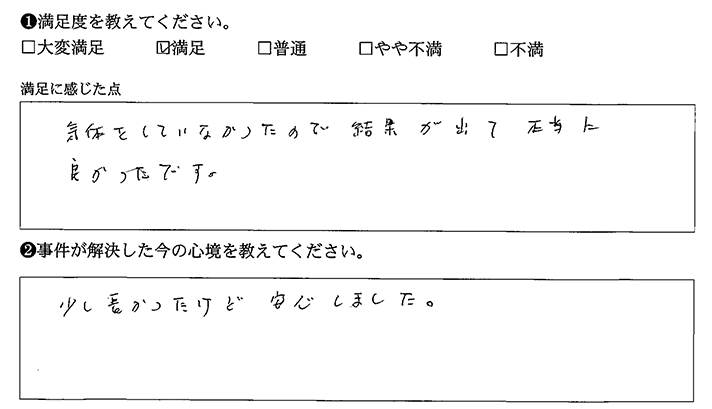 ❶満足度を教えてください。
□大変満足 ☑満足 □普通 □やや不満 □不満
満足に感じた点
気体をしていなかったので 結果が出て 本当に
良かったです。
❷事件が解決した今の心境を教えてください。
少し長かったけど 安心しました。